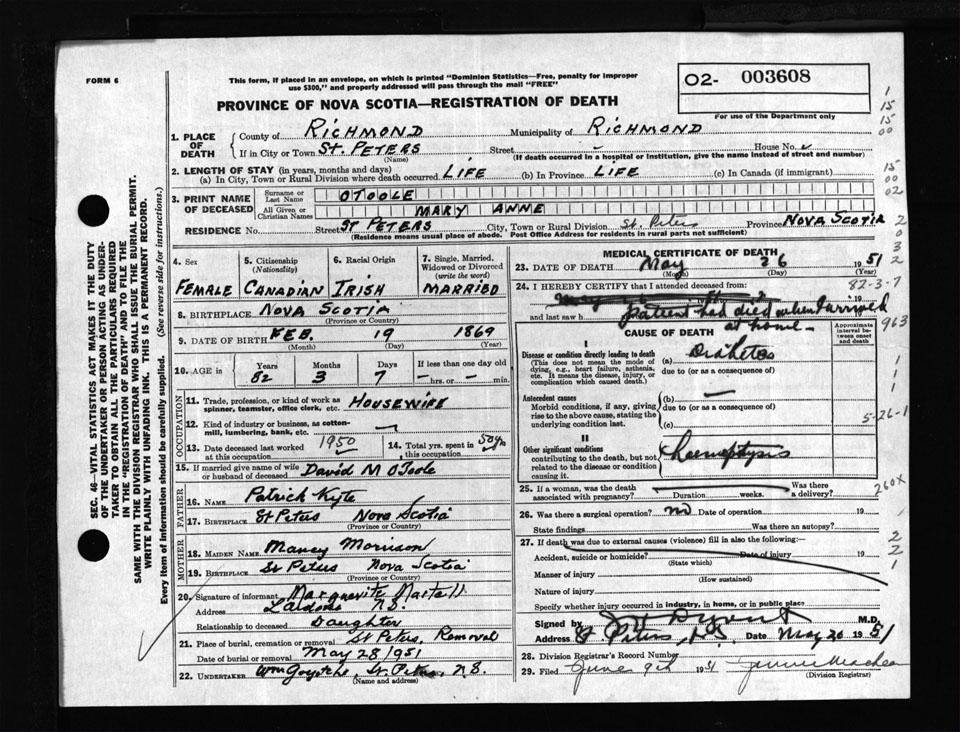 FORM 6
This form, if placed in an envelope, on which is printed "Dominion Statistics—Free, penalty for improper
use $300," and properly addressed will pass through the mail "FREE"
O2- 003608
For use of the Department only
PROVINCE OF NOVA SCOTIA—REGISTRATION OF DEATH
1. PLACE OF DEATH County of RICHMOND Municipality of RICHMOND
If in City or Town ST. PETERS (Name) Street House No.
(If death occurred in a hospital or institution, give the name instead of street and number)
2. LENGTH OF STAY (in years, months and days)
(a) In City, Town or Rural Division where death occurred LIFE (b) In Province LIFE (c) In Canada (if immigrant)
3. PRINT NAME OF DECEASED Surname or Last Name OTOOLE
All Given or Christian Names MARY ANNE
RESIDENCE No. Street ST PETERS City, Town or Rural Division St. Peters Province NOVA SCOTIA
(Residence means usual place of abode. Post Office Address for residents in rural parts not sufficient)
4. Sex
FEMALE
5. Citizenship (Nationality)
CANADIAN
6. Racial Origin
IRISH
7. Single, Married, Widowed or Divorced (write the word)
MARRIED
8. BIRTHPLACE NOVA SCOTIA
(Province or Country)
9. DATE OF BIRTH FEB. 19 1869
(Month) (Day) (Year)
10. AGE in Years Months Days If less than one day old
82 3 7 — hrs. or — min.
OCCUPATION
11. Trade, profession, or kind of work as spinner, teamster, office clerk, etc. HOUSEWIFE
12. Kind of industry or business, as cotton-mill, lumbering, bank, etc. —
13. Date deceased last worked at this occupation 1950
14. Total yrs. spent in this occupation 50 yrs
15. If married give name of wife or husband of deceased David M O'Toole
FATHER
16. NAME Patrick Kyte
17. BIRTHPLACE St Peters Nova Scotia
(Province or Country)
MOTHER
18. MAIDEN NAME Mancy Morrison
19. BIRTHPLACE St Peters Nova Scotia
(Province or Country)
20. Signature of informant Marguerite Martell
Address N.S.
Relationship to deceased Daughter
21. Place of burial, cremation or removal St Peters, Removal
Date of burial or removal May 28/1951
22. UNDERTAKER St. Peters, N.S.
(Name and address)
MEDICAL CERTIFICATE OF DEATH
23. DATE OF DEATH May 26 1951
(Month) (Day)
24. I HEREBY CERTIFY that I attended deceased from:
82-3-7
19
and last saw h patient had died when I arrived
at home—
963
CAUSE OF DEATH
Approximate interval between onset and death
I
Disease or condition directly leading to death (a) Diabetes
(This does not mean the mode of dying, e.g., heart failure, asthenia, etc. It means the disease, injury, or complication which caused death.)
due to (or as a consequence of)
Antecedent causes (b) —
Morbid conditions, if any, giving rise to the above cause, stating the underlying condition last.
due to (or as a consequence of)
(c)
5-26-1
II
Other significant conditions
contributing to the death, but not related to the disease or condition causing it.
Haemophysis
25. If a woman, was the death associated with pregnancy? Duration weeks. Was there a delivery?
260X
26. Was there surgical operation? no Date of operation 19
State findings Was there an autopsy?
27. If death was due to external causes (violence) fill in also the following:—
Accident, suicide or homicide? Date of injury 19
(State which)
Manner of injury
(How sustained)
Nature of injury
Specify whether injury occurred in industry, in home, or in public place
Signed by M.D.
Address St Peters, N.S. Date May 26 1951
28. Division Registrar's Record Number
29. Filed June 9th 1951
(Division Registrar)
SEC. 46—VITAL STATISTICS ACT MAKES IT THE DUTY
OF THE UNDERTAKER OR PERSON ACTING AS UNDER-
TAKER TO OBTAIN ALL THE PARTICULARS REQUIRED
IN THE "REGISTRATION OF DEATH" AND TO FILE THE
SAME WITH THE DIVISION REGISTRAR WHO SHALL ISSUE THE BURIAL PERMIT.
WRITE PLAINLY WITH UNFADING INK. THIS IS A PERMANENT RECORD.
Every item of information should be carefully supplied. (See reverse side for instructions.)